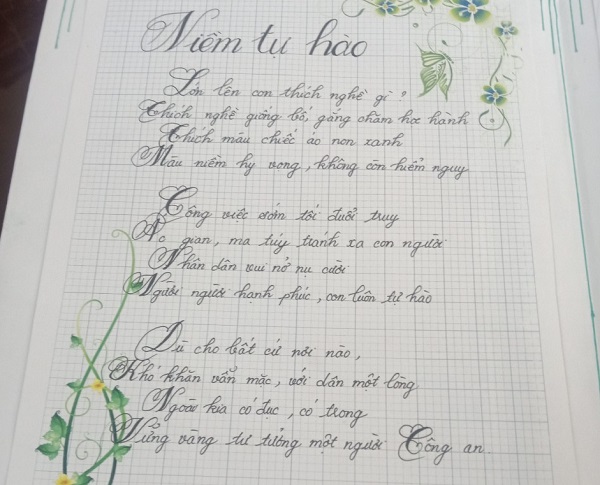 Niềm tự hào
Lớn lên con thích nghề gì?
Thích nghề giống bố, gắng chăm học hành
Thích màu chiếc áo non xanh
Màu niềm hy vọng, không còn hiểm nguy
Công việc sớm tối đuổi truy
gian, ma túy tránh xa con người
Nhân dân vui nở nụ cười
Người người hạnh phúc, con luôn tự hào
Dù cho bất cứ nơi nào,
Khó khăn vẫn mặc, với dân một lòng
Ngoài kia có đục, có trong
Vững vàng tư tưởng một người Công an